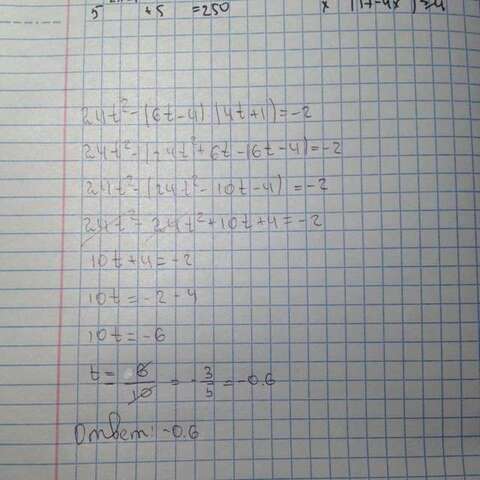 5 +5 =250
24t² - (6t-4)·(4t+1) = -2
24t² - (24t² + 6t - 16t - 4) = -2
24t² - (24t² - 10t - 4) = -2
24t² - 24t² + 10t + 4 = -2
10t + 4 = -2
10t = -2 - 4
10t = -6
t = -6/10 = -3/5 = -0.6
Ответ: -0.6